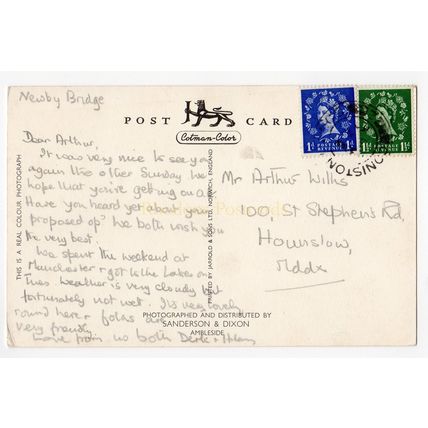 Newby Bridge
POST CARD
Cotman-Color
Dear Arthur,
It was very nice to see you
again the other Sunday. We
hope that you're getting on O.K.
Have you heard yet about your
proposed op? We both wish you
the very best.
We spent the weekend at
Manchester & got to the Lakes on
Tues. Weather is very cloudy but
fortunately not wet. It's very lovely
round here & folks are
very friendly
Love from us both Derek &
THIS IS A REAL COLOUR PHOTOGRAPH
PRINTED BY JARROLD & SONS LTD, NORWICH, ENGLAND
PHOTOGRAPHED AND DISTRIBUTED BY
SANDERSON & DIXON
AMBLESIDE
POSTAGE REVENUE
1d 1d
POSTAGE REVENUE
1½d 1½d
CONISTON
Mr Arthur Wills
100, St Stephen's Rd,
Hounslow,
Mddx